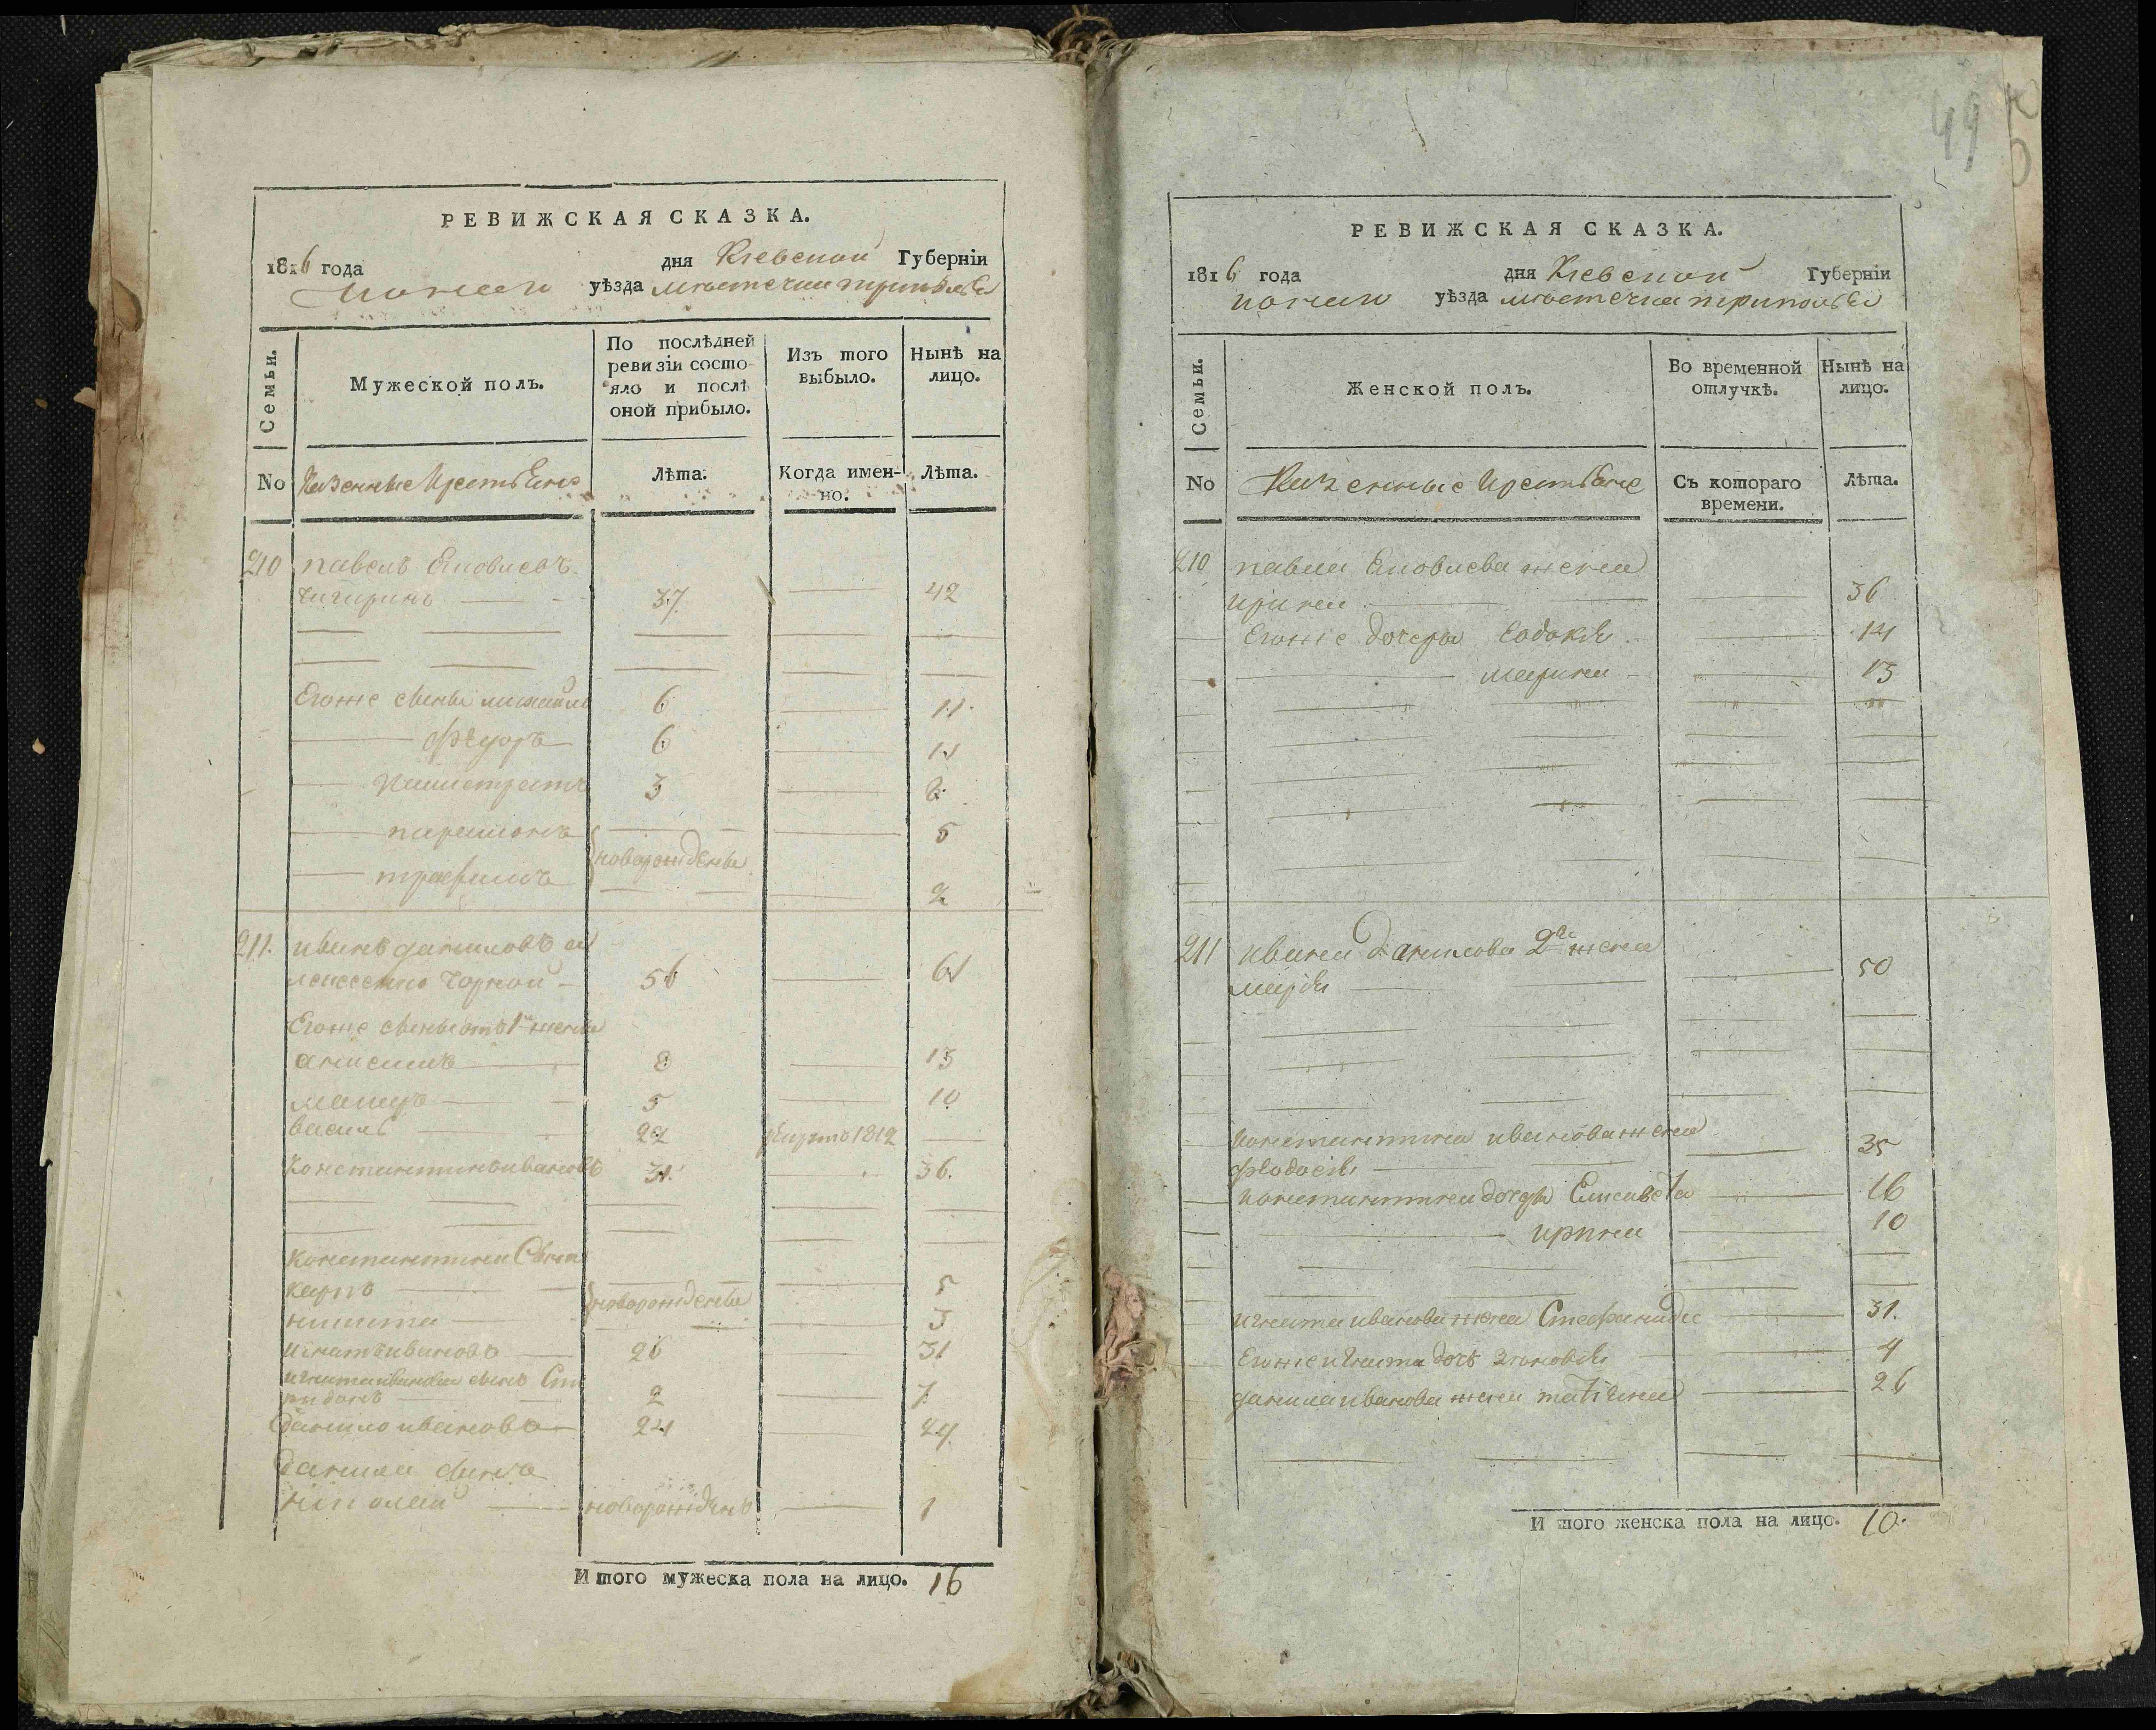 РЕВИЖСКАЯ СКАЗКА.
1816 года дня Киевской Губерніи
уѣзда местечка триполья
Семьи.
Мужеской полъ.
По послѣдней ревизіи состояло и послѣ оной прибыло.
Изъ того выбыло.
Нынѣ на лицо.
No Казенные Крестьяне
Лѣта.
Когда именно.
Лѣта.
210 павелъ Яковлевъ
Чигиринъ — 37 — 42
Егоже сыны михайло 6 — 11
— федоръ 6 — 11
— калистратъ 3 — 8
— парамонъ — 5
новорожденны
— трофимъ — 2
211. иванъ даниловъ
чорной — 56 — 61
Егоже сыны отъ 1й жены
анисимъ — 8 — 13
— 5 — 10
василь — 22 1812 —
Константинъ ивановъ 31 — 36.
константина Сыны
карпъ — 5
новорожденны
никита — 3
игнатъ ивановъ — 26 — 31
игната иванова сынъ Спи
ридонъ — 2 — 7
данило ивановъ — 24 — 29
данила сынъ
николай — новорожденъ — 1
И того мужеска пола на лицо. 16
49
РЕВИЖСКАЯ СКАЗКА.
1816 года дня Киевской Губерніи
уѣзда местечка триполья
Семьи.
Женской полъ.
Во временной отлучкѣ.
Нынѣ на лицо.
No Казенные Крестьяне
Съ котораго времени.
Лѣта.
210 павла Яковлева жена
ирина — 36
Егоже дочери Евдокия — 14
— марина — 13
211 ивана Данилова 2я жена
марья — 50
константина иванова жена
феодосия — 35
константина дочери Елисавета — 16
— ирина — 10
игната иванова жена Стефанида — 31.
Егоже игната дочь зеновия — 4
данила иванова жена татияна — 26
И того женска пола на лицо. 10.